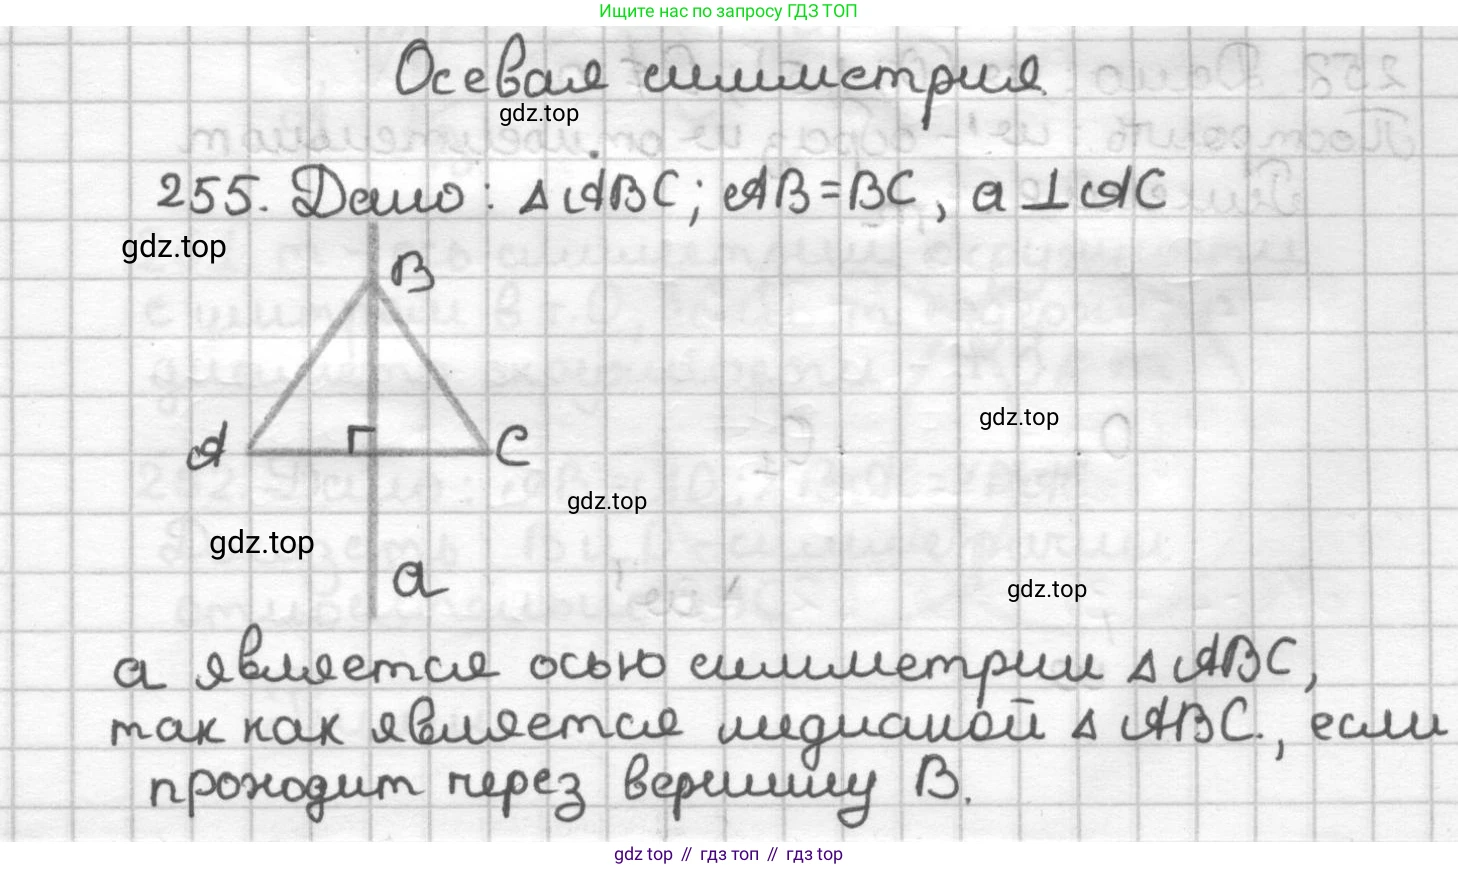 Ищите нас по запросу ГДЗ ТОП
Осевая симметрия
gdz.top
255. Дано: △ABC; AB=BC, a⊥AC
gdz.top
B
gdz.top
A
C
gdz.top
gdz.top
a
gdz.top
a является осью симметрии △ABC,
так как является медианой △ABC, если
проходит через вершину B.
gdz top // гдз топ // гдз top